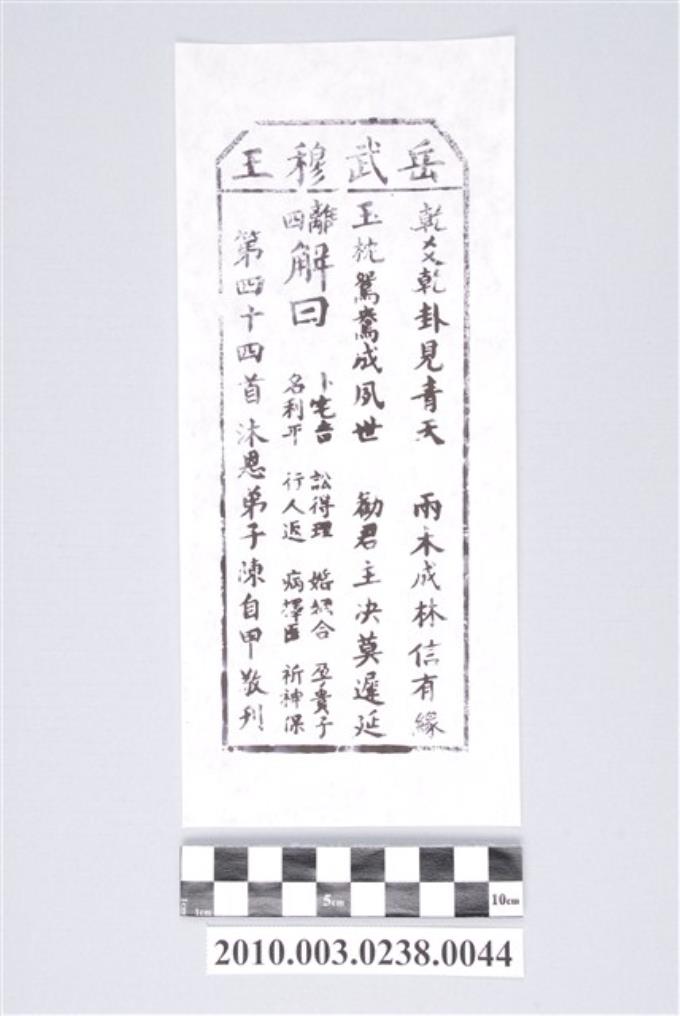 岳武穆王
乾爻乾卦見青天 兩木成林信有緣
玉枕鴛鴦成夙世 勸君主决莫遲延
離四
解曰
卜宅吉 訟得理 婚姻合 孕貴子
名利平 行人返 病擇醫 祈神保
第四十四首 沐恩弟子陳自甲敬刊
1cm 5cm 10cm
2010.003.0238.0044